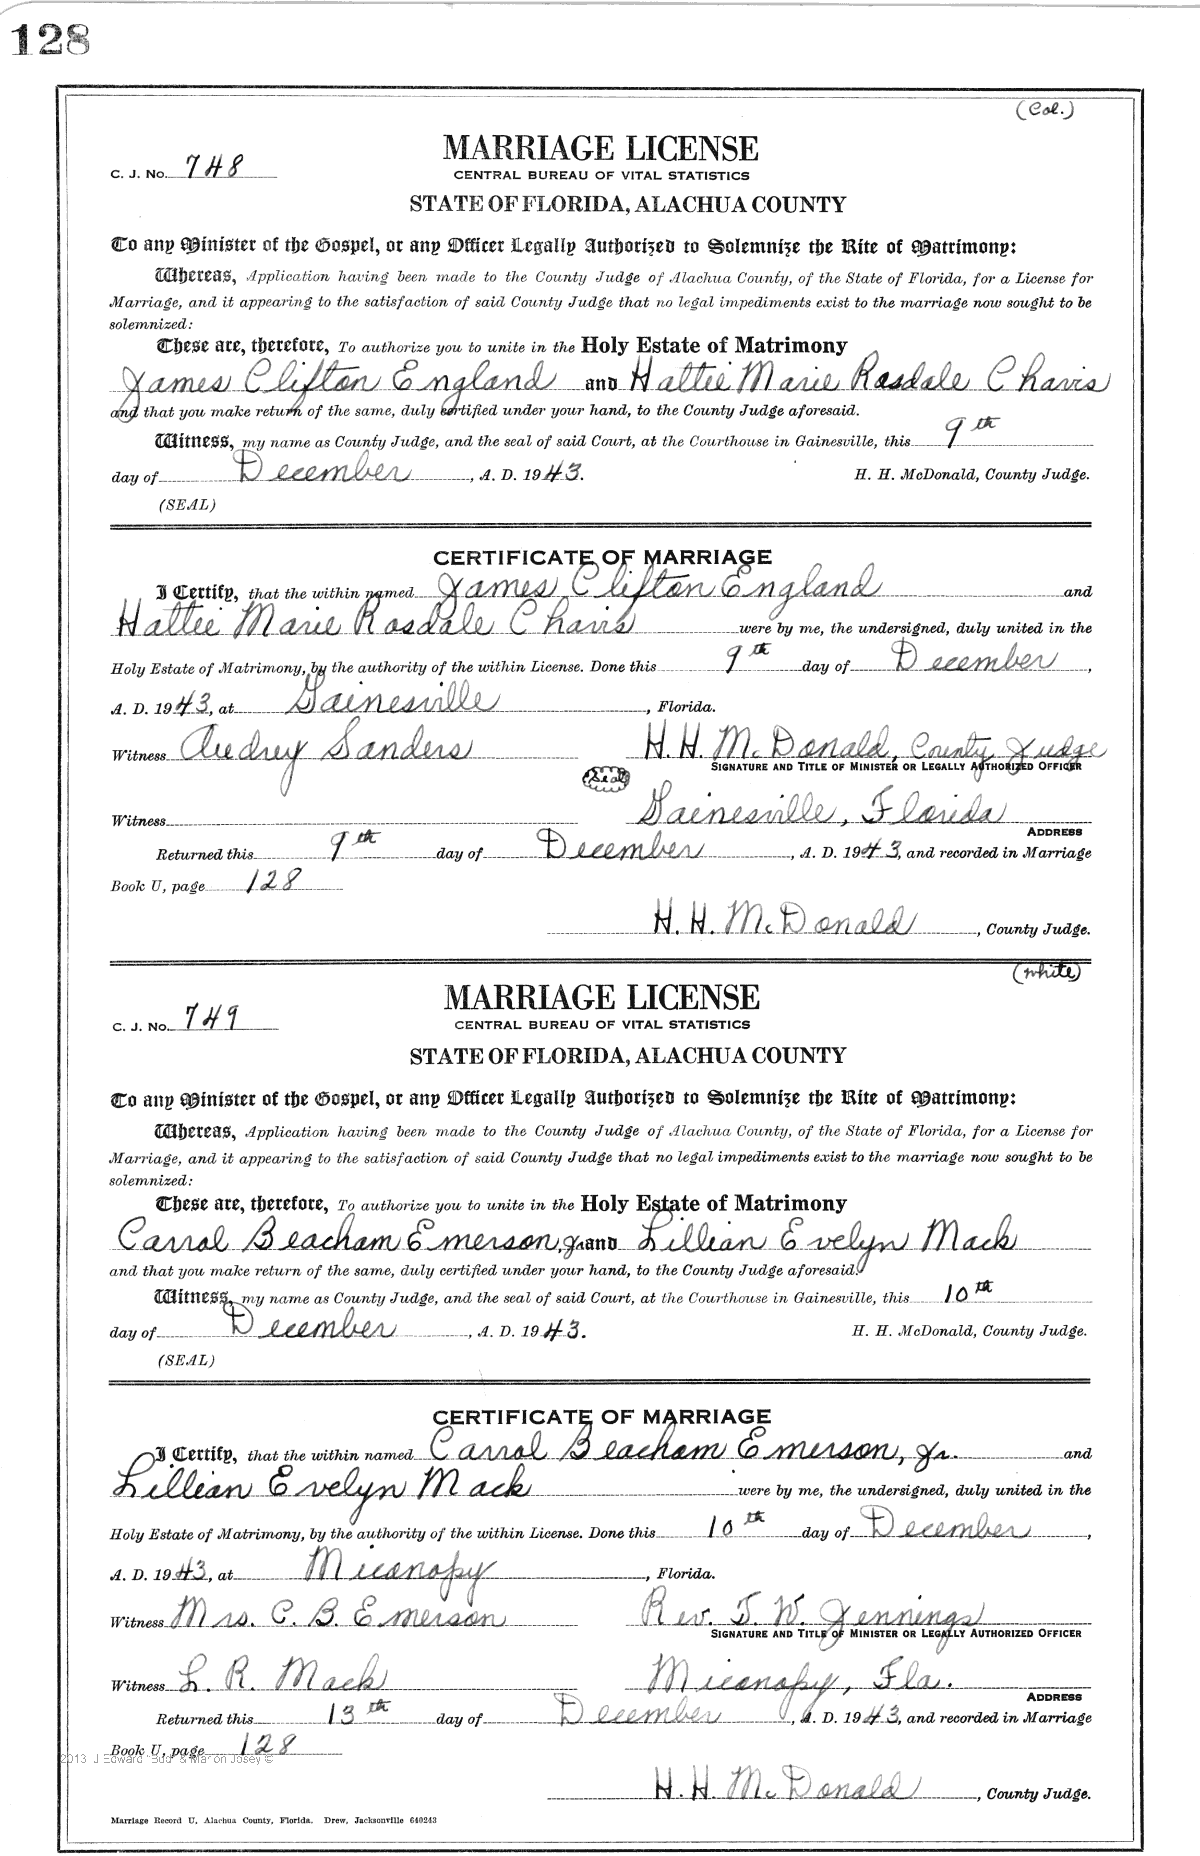 128
(Col.)
MARRIAGE LICENSE
C. J. No. 748
CENTRAL BUREAU OF VITAL STATISTICS
STATE OF FLORIDA, ALACHUA COUNTY
To any Minister of the Gospel, or any Officer Legally Authorized to Solemnize the Rite of Matrimony:
Whereas, Application having been made to the County Judge of Alachua County, of the State of Florida, for a License for
Marriage, and it appearing to the satisfaction of said County Judge that no legal impediments exist to the marriage now sought to be
solemnized:
These are, therefore, To authorize you to unite in the Holy Estate of Matrimony
James Clifton England and Hattie Marie Rosdale Chavis
and that you make return of the same, duly certified under your hand, to the County Judge aforesaid.
Witness, my name as County Judge, and the seal of said Court, at the Courthouse in Gainesville, this 9th
day of December, A. D. 1943. H. H. McDonald, County Judge.
(SEAL)
CERTIFICATE OF MARRIAGE
I Certify, that the within named James Clifton England and
Hattie Marie Rosdale Chavis were by me, the undersigned, duly united in the
Holy Estate of Matrimony, by the authority of the within License. Done this 9th day of December,
A. D. 1943, at Gainesville, Florida.
Witness Audrey Sanders H. H. McDonald, County Judge
SIGNATURE AND TITLE OF MINISTER OR LEGALLY AUTHORIZED OFFICER
Seal
Witness Gainesville, Florida
ADDRESS
Returned this 9th day of December, A. D. 1943, and recorded in Marriage
Book U, page 128
H. H. McDonald, County Judge.
(white)
MARRIAGE LICENSE
C. J. No. 749
CENTRAL BUREAU OF VITAL STATISTICS
STATE OF FLORIDA, ALACHUA COUNTY
To any Minister of the Gospel, or any Officer Legally Authorized to Solemnize the Rite of Matrimony:
Whereas, Application having been made to the County Judge of Alachua County, of the State of Florida, for a License for
Marriage, and it appearing to the satisfaction of said County Judge that no legal impediments exist to the marriage now sought to be
solemnized:
These are, therefore, To authorize you to unite in the Holy Estate of Matrimony
Carrol Beacham Emerson, Jr. and Lillian Evelyn Mack
and that you make return of the same, duly certified under your hand, to the County Judge aforesaid.
Witness, my name as County Judge, and the seal of said Court, at the Courthouse in Gainesville, this 10th
day of December, A. D. 1943. H. H. McDonald, County Judge.
(SEAL)
CERTIFICATE OF MARRIAGE
I Certify, that the within named Carrol Beacham Emerson, Jr. and
Lillian Evelyn Mack were by me, the undersigned, duly united in the
Holy Estate of Matrimony, by the authority of the within License. Done this 10th day of December,
A. D. 1943, at Micanopy, Florida.
Witness Mrs. C. B. Emerson Rev. T. W. Jennings
SIGNATURE AND TITLE OF MINISTER OR LEGALLY AUTHORIZED OFFICER
Witness L. R. Mack Micanopy, Fla.
ADDRESS
Returned this 13th day of December, A. D. 1943, and recorded in Marriage
Book U, page 128
2013 J Edward "Bud" & Marion Josey ©
H. H. McDonald, County Judge.
Marriage Record U, Alachua County, Florida. Drew, Jacksonville 640243